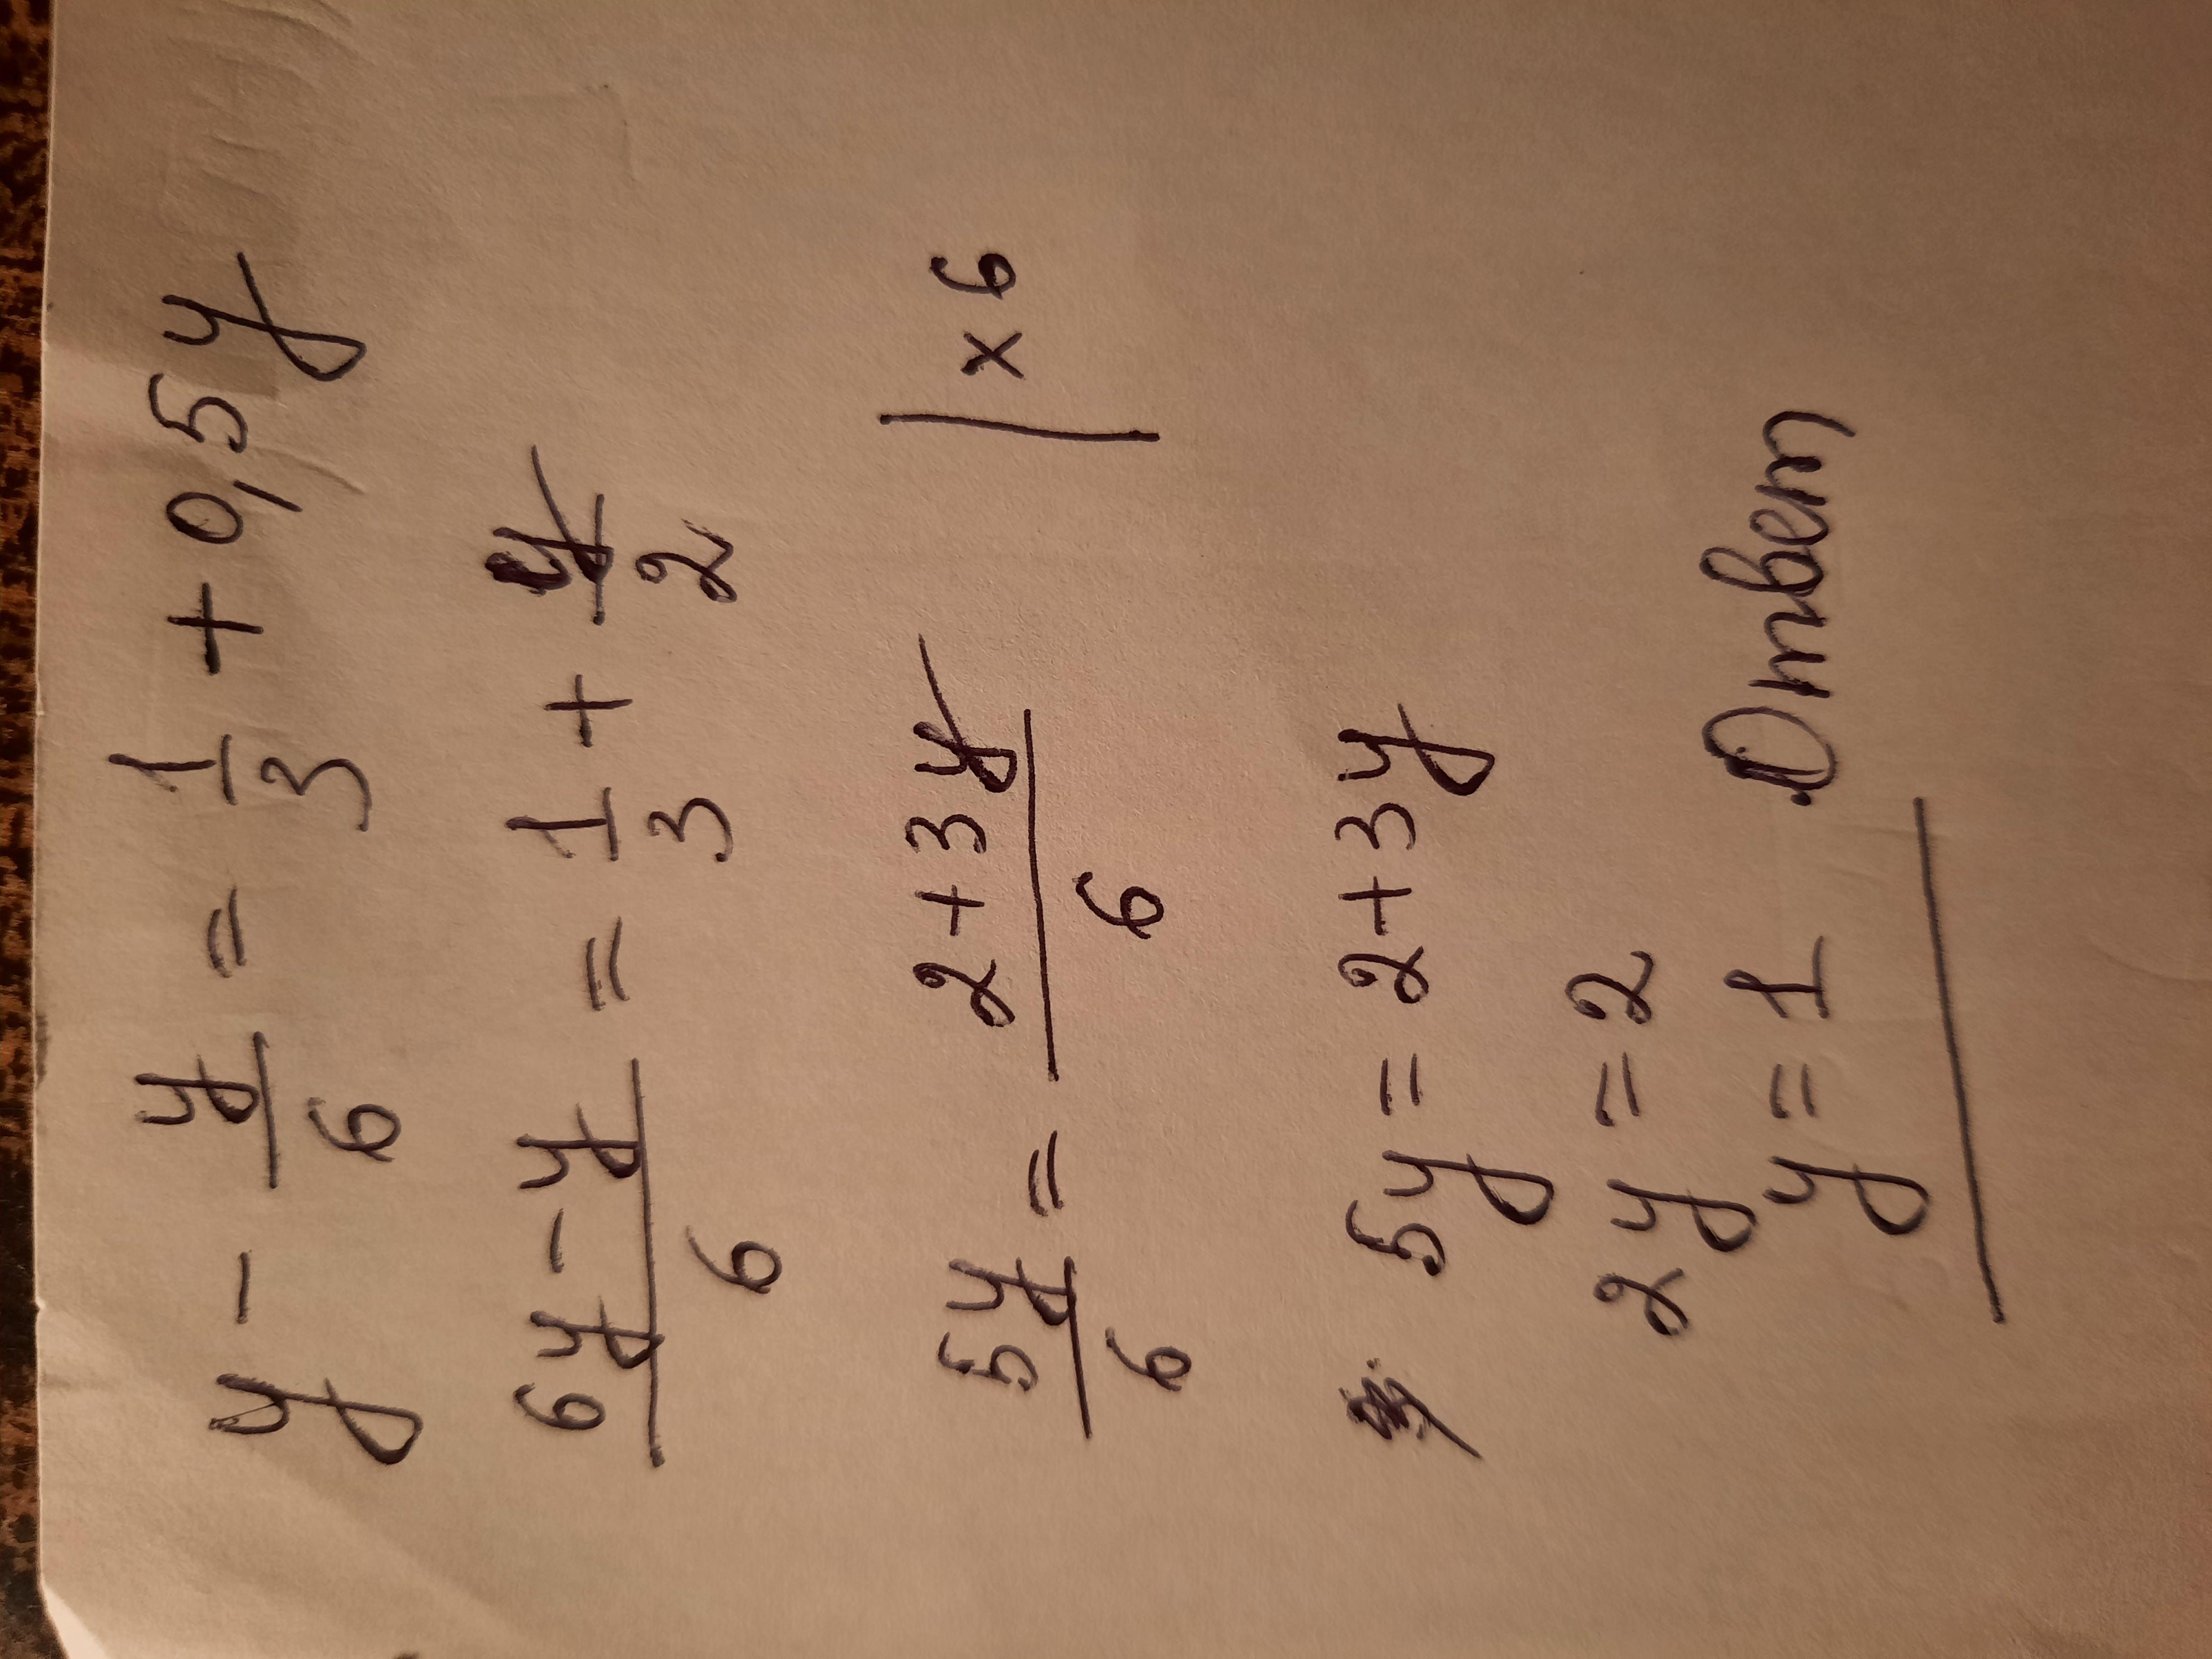 y - y/6 = 1/3 + 0,5y
6y - y/6 = 1/3 + y/2
5y/6 = 2 + 3y/6 | x 6
5y = 2 + 3y
2y = 2
y = 1 Ответ